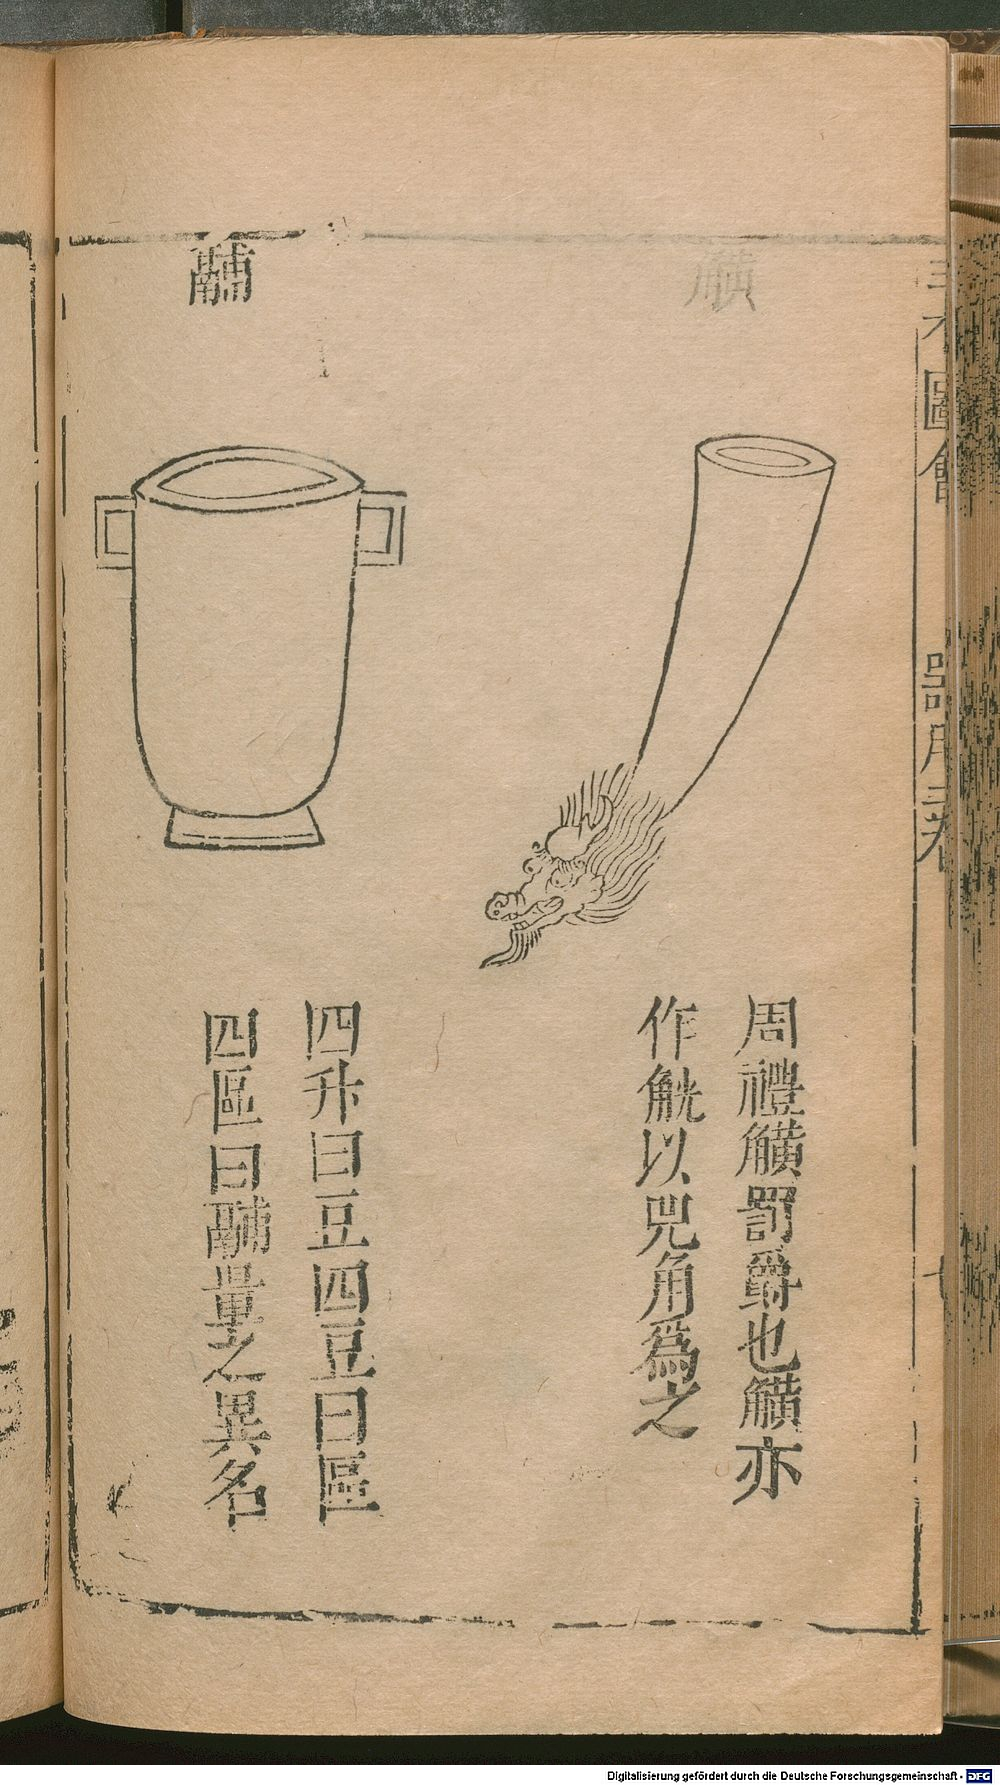 觵
周禮觵罰爵也觵亦
作觥以兕角爲之
鬴
四升曰豆四豆曰區
四區曰鬴量之異名
圖會
器用三卷
Digitalisierung gefördert durch die Deutsche Forschungsgemeinschaft - DFG